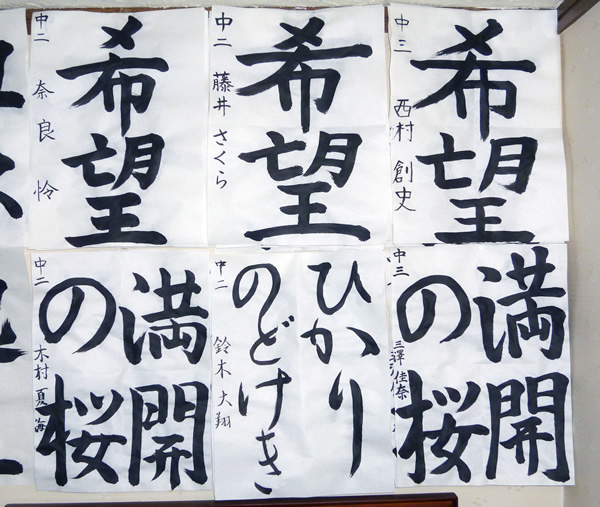 希望
中三 西村 創史
希望
中二 藤井 さくら
希望
中二 奈良 怜
満開
の桜
中三 三澤 佳奈
ひかり
のどけき
中二 鈴木 大翔
満開
の桜
中二 木村 夏海